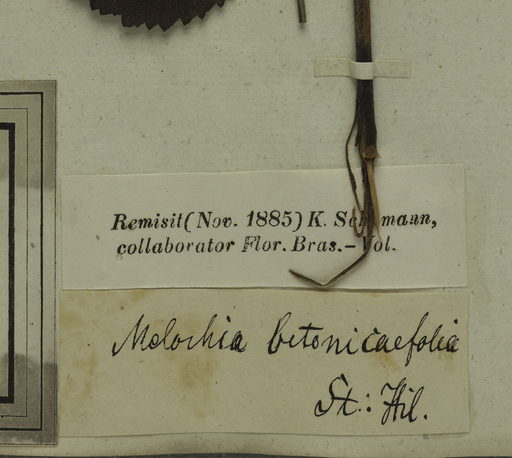 Remisit (Nov. 1885) K. Sch mann,
collaborator Flor. Bras.-Vol.
Melochia betonicaefolia
St: Hil.